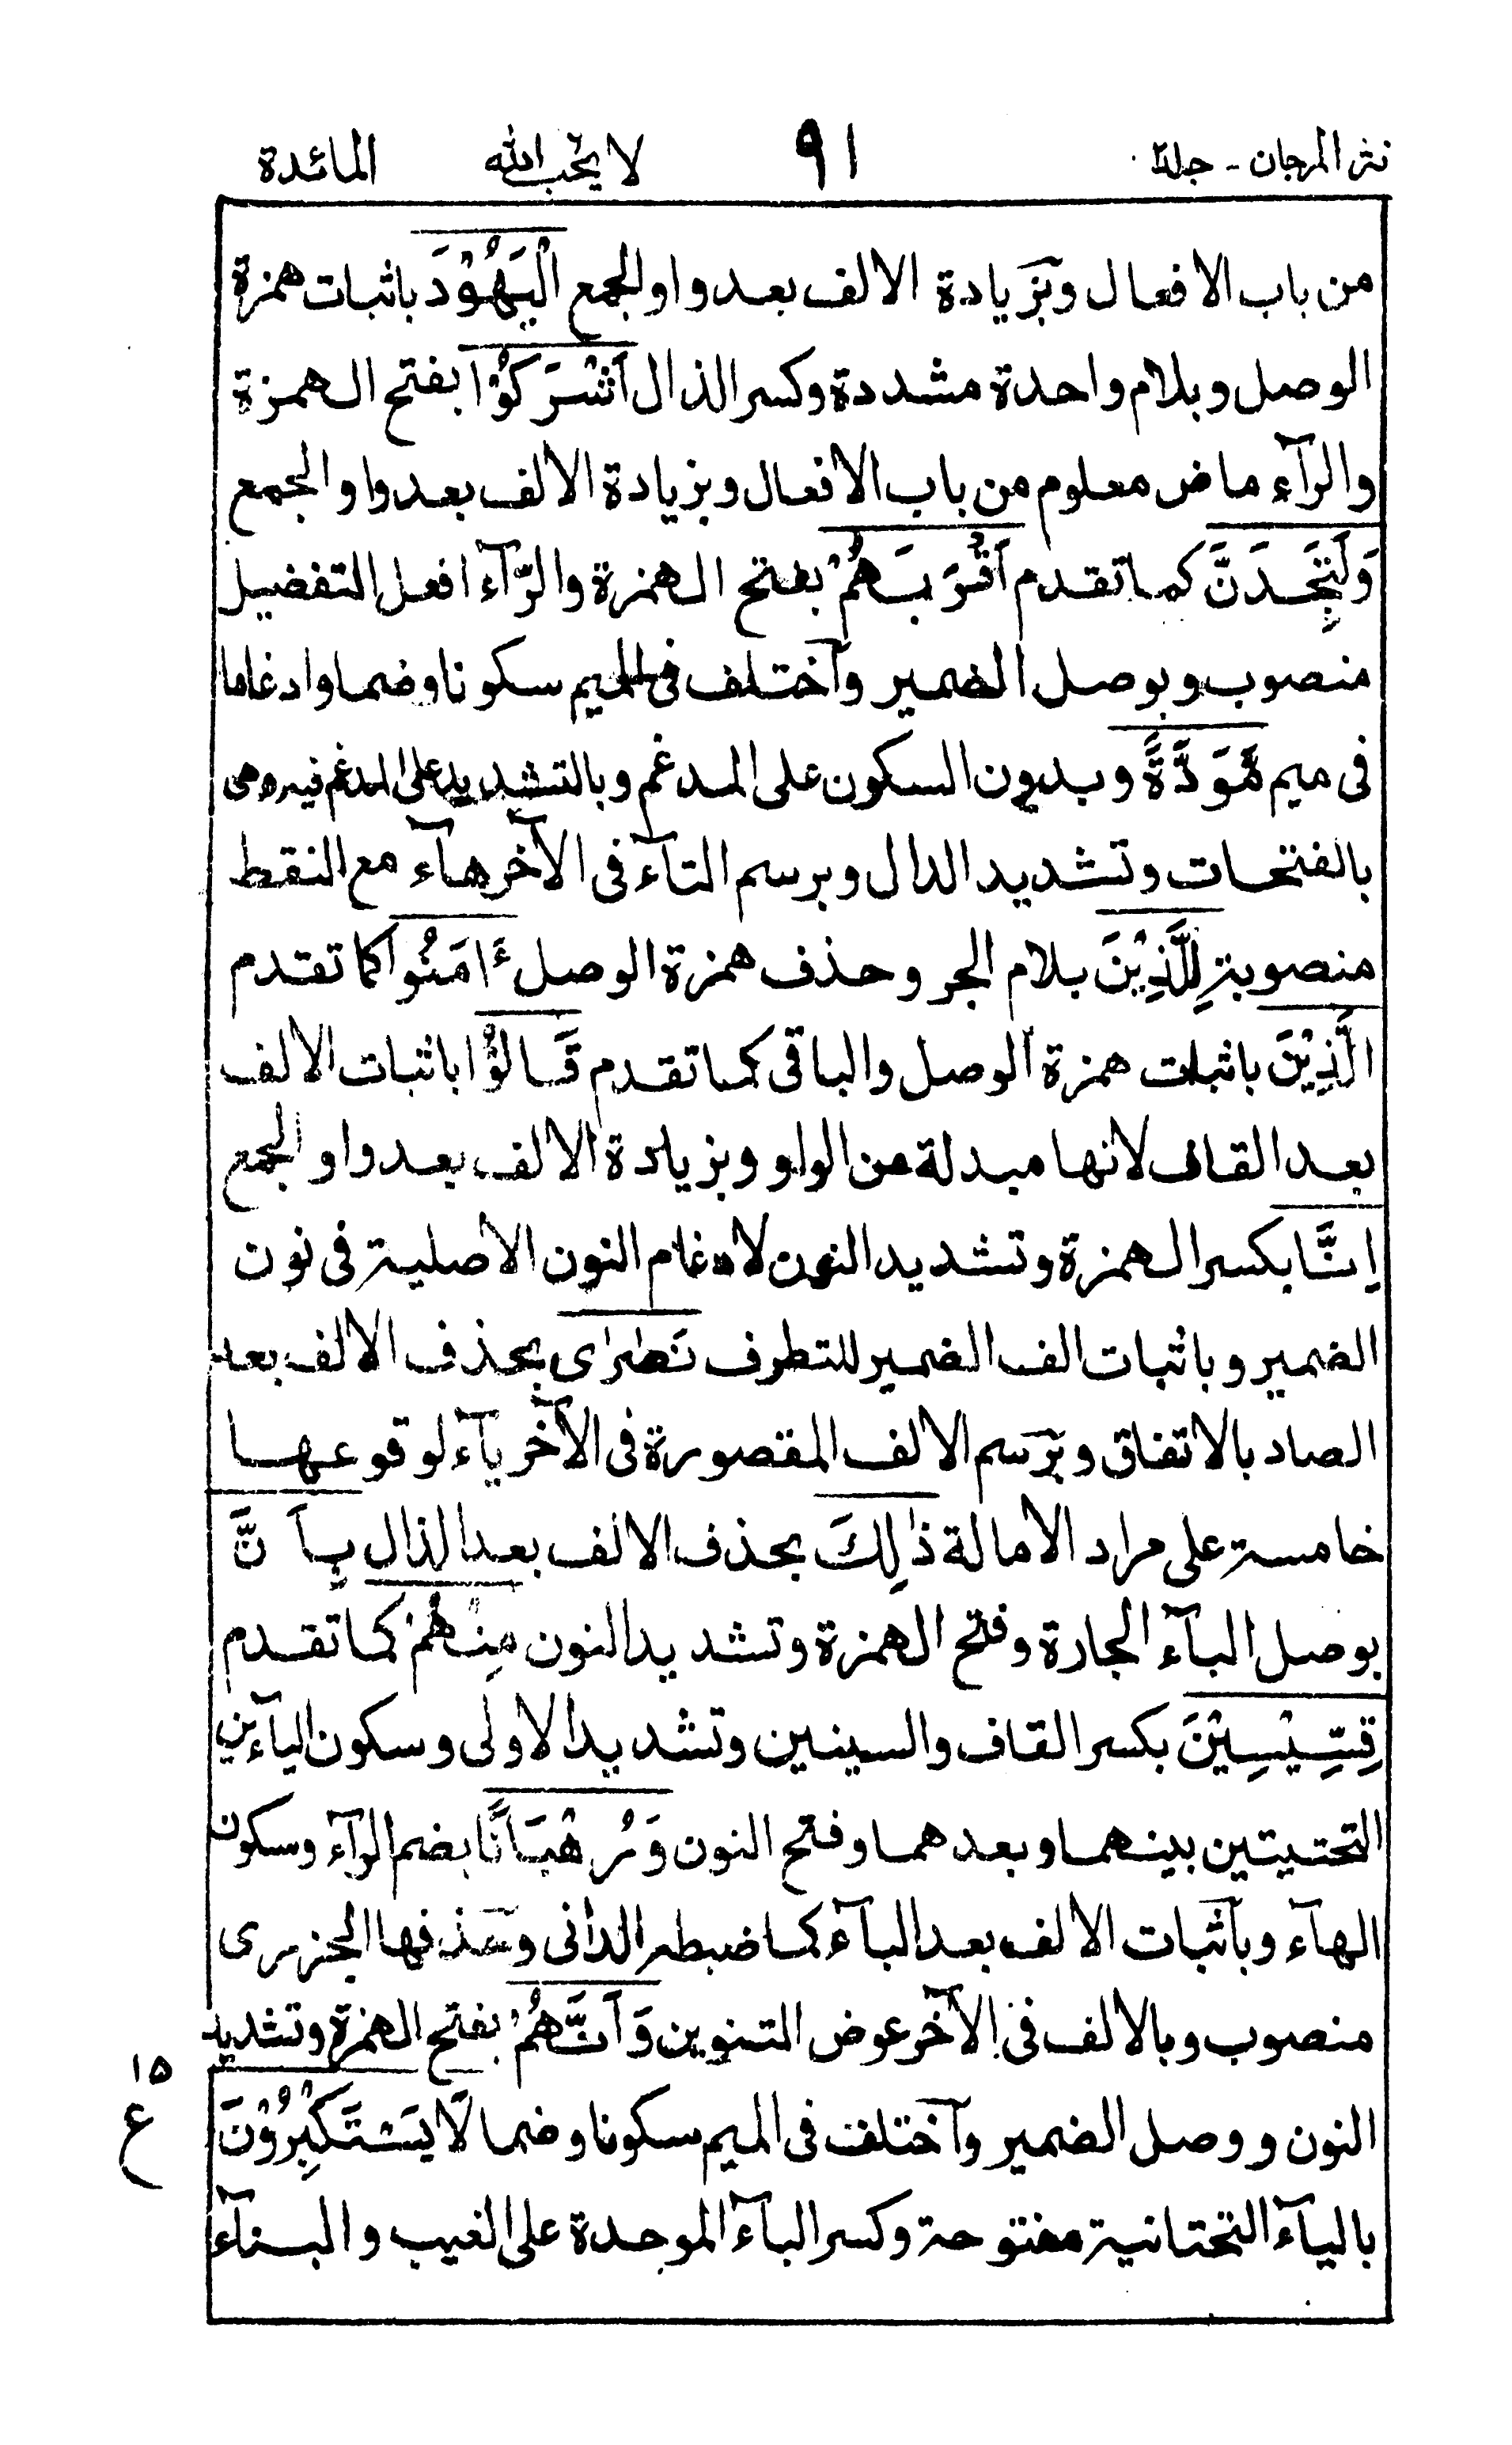 نثر المرجان - جلد٢ ٩١ لا يحب الله المائدة
من باب الافعال وبزيادة الالف بعد واو الجمع الْيَهُوْدَ باثبات همزة
الوصل وبلام واحدة مشددة وكسر الذال اَشْرَكُوْا بفتح الهمزة
والرآء ماض معلوم من باب الافعال وبزيادة الالف بعد واو الجمع
وَلَتَجِدَنَّ كما تقدم اَقْرَبَهُمْ بفتح الهمزة والرّآء افعل التفضيل
منصوب وبوصل الضمير وآختلف فى الميم سكونا وضما وادغاما
فى ميم مَّوَدَّةً وبدون السكون على المدغم وبالتشديد على المدغم فيه وهى
بالفتحات وتشديد الدال وبرسم التآء فى الآخر هآء مع النقط
منصوبة لِلَّذِيْنَ بلام الجر وحذف همزة الوصل ءَامَنُوا كما تقدم
الَّذِيْنَ باثبات همزة الوصل والباقى كما تقدم قَالُوْا باثبات الالف
بعد القاف لانها مبدلة من الواو وبزيادة الالف بعد واو الجمع
اِنَّا بكسر الهمزة وتشديد النون لادغام النون الاصلية فى نون
الضمير وباثبات الف الضمير للتطرف نَصٰرٰى بحذف الالف بعد
الصاد بالاتفاق وبرسم الالف المقصورة فى الآخر يآء لوقوعها
خامسة على مراد الامالة ذٰلِكَ بحذف الالف بعد الذال بِاَنَّ
بوصل البآء الجارة وفتح الهمزة وتشديد النون مِنْهُمْ كما تقدم
قِسِّيْسِيْنَ بكسر القاف والسينين وتشديد الاولى وسكون اليآءين
التحتيتين بينهما وبعدهما وفتح النون وَرُهْبَانًا بضم الرآء وسكون
الهآء وبآثبات الالف بعد البآء كما ضبطه الدانى وحذفها الجزرى
منصوب وبالالف فى الآخر عوض التنوين وَاَنَّهُمْ بفتح الهمزة وتشديد
النون ووصل الضمير وآختلف فى الميم سكونا وضما لَا يَسْتَكْبِرُوْنَ
١٥
ع
باليآء التحتانية مفتوحة وكسر البآء الموحدة على الغيب والبنآء